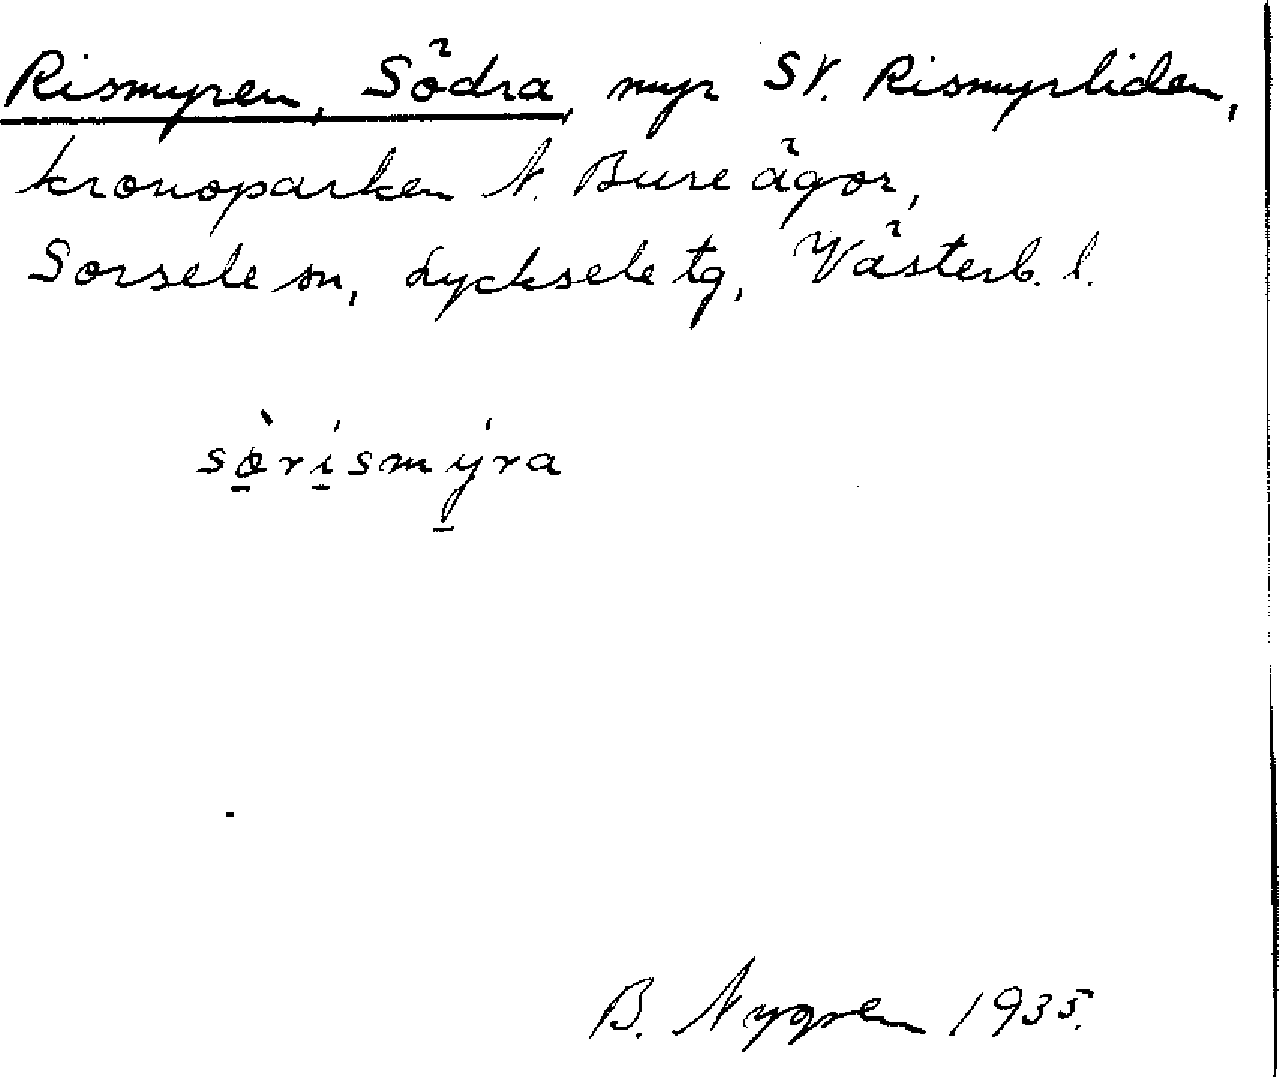 Rismyren, Södra, myr SV. Rismyrliden,
kronoparken N. Bure ägor,
Sorsele sn, Lycksele tg, Västerb. l.
sø̱̀rí̱smý̱ra
B. Nygren 1935.